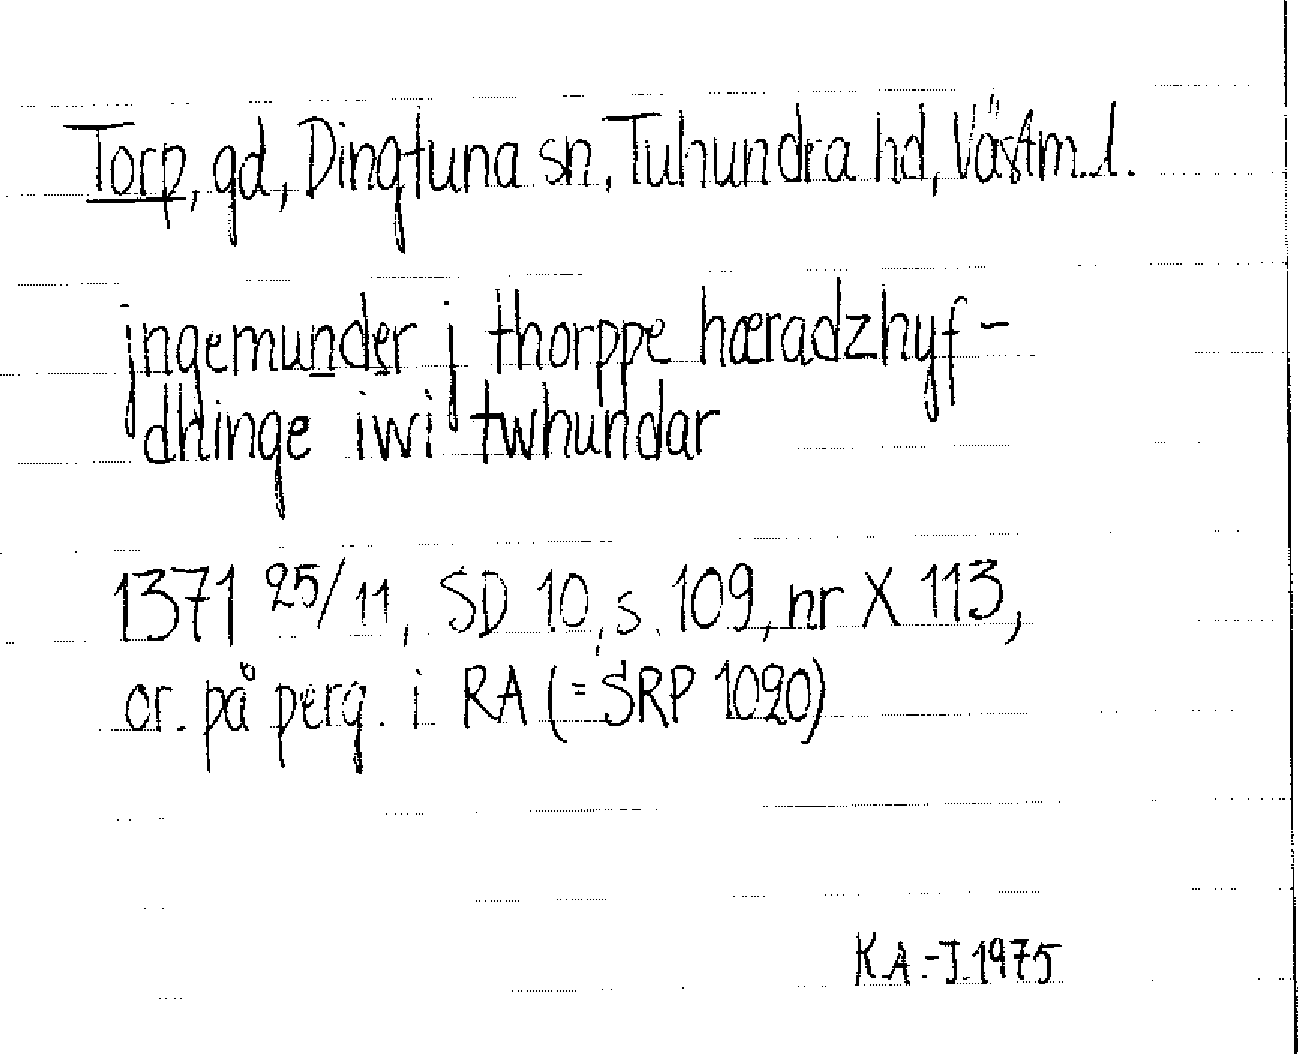 Torp, gd, Dingtuna sn, Tuhundra hd, Västm. l.
jngemunder j thorppe hæradzhyf-
dhinge iwi twhundar
1371 25/11, SD 10, s. 109, nr X 113,
or. på perg. i RA (= SRP 1020)
K.A.-J. 1975